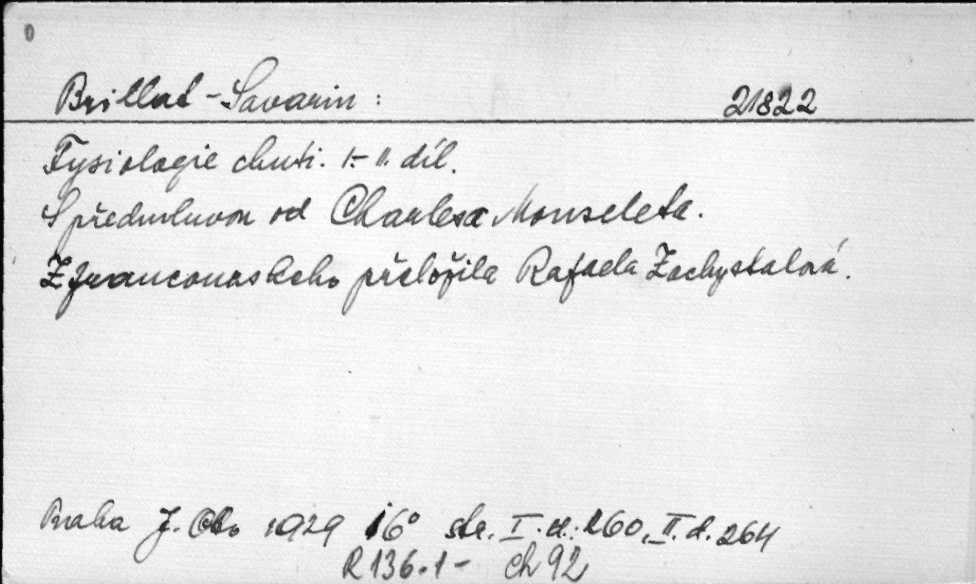 0
Brillat-Savarin: 21822
Fysiologie chuti. I.-II. díl.
S předmluvou od Charlesa Monseleta.
Z francouzského přeložila Rafaela Zachystalová.
Praha J. Otto 1929 16° str. I. d.: 260, II. d. 264
R 136.1- Ch 92